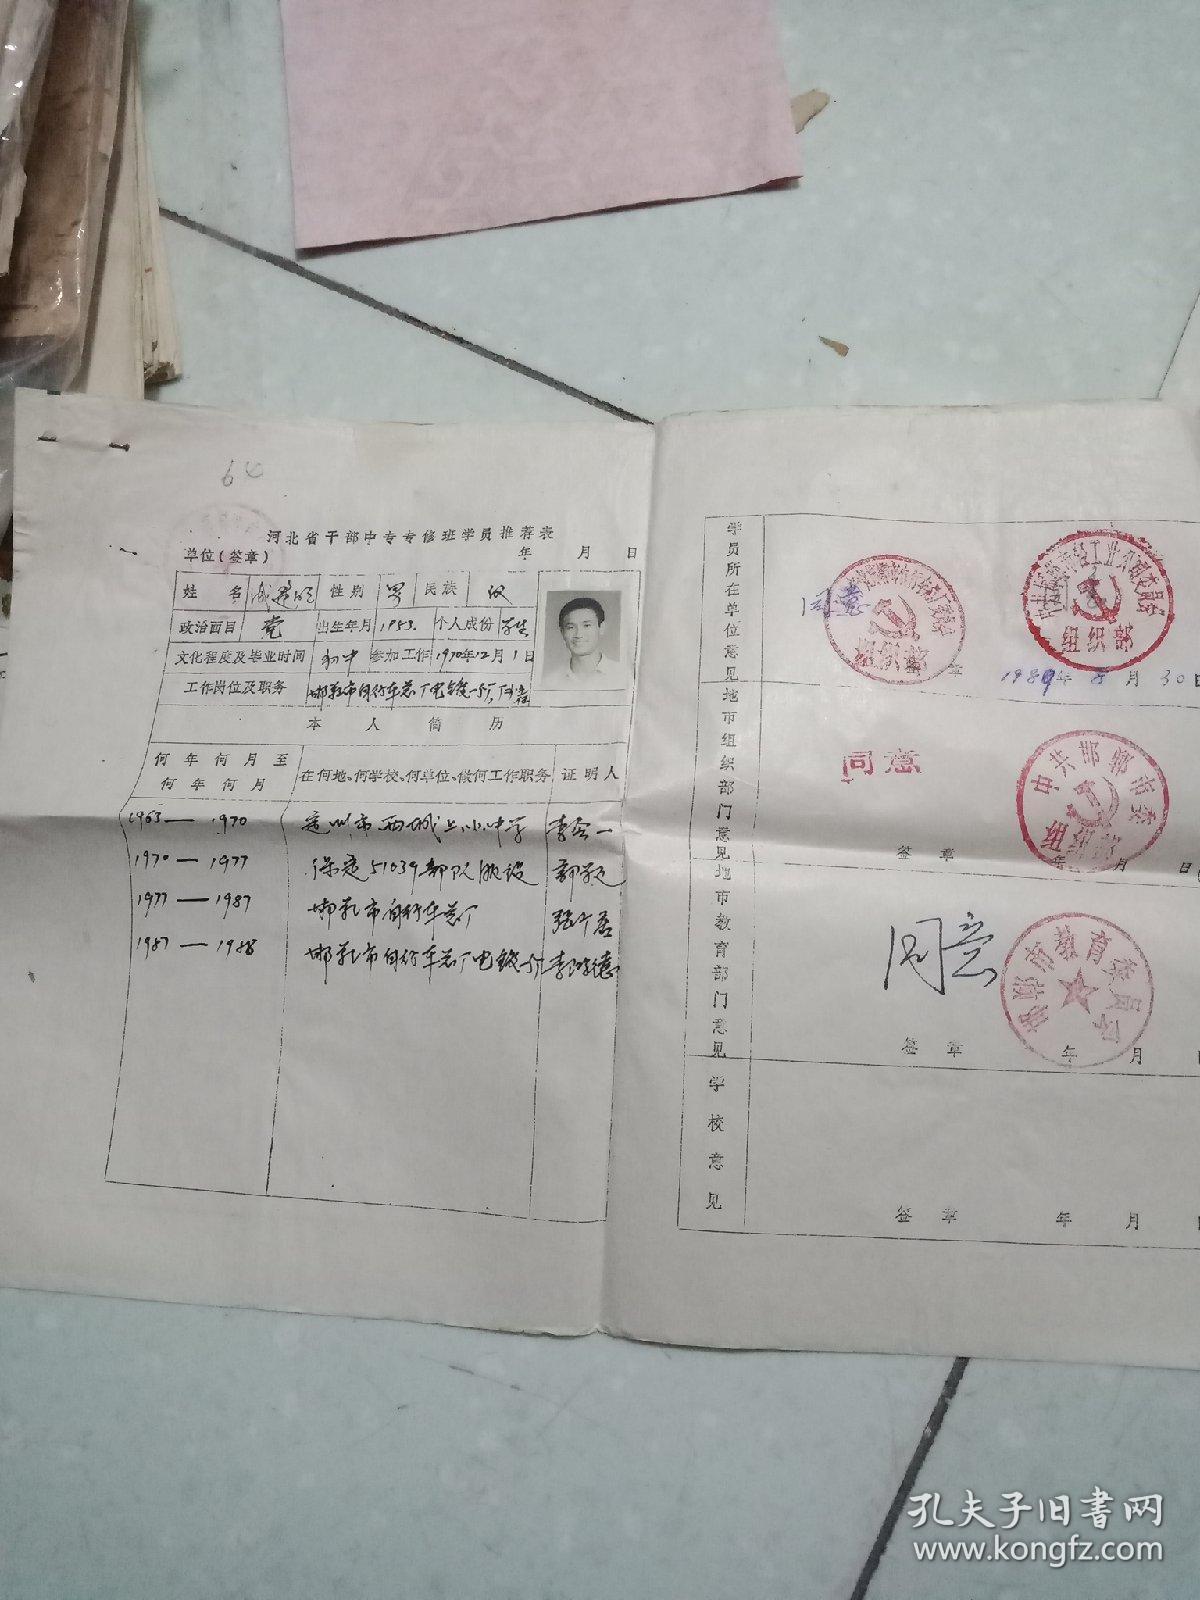 64
河北省干部中专专修班学员推荐表
单位(签章) 年 月 日
姓 名 性别 男 民族 汉
政治面目 党 出生年月 1953. 个人成份 学生
文化程度及毕业时间 初中 参加工作 1970年12月1日
工作岗位及职务 邯郸市自行车总厂电镀一分厂
本 人 简 历
何 年 何 月 至 何 年 何 月 在何地、何学校、何单位、做何工作职务 证明人
1963— 1970 定州市西城上小、中学
1970 — 1977 保定51039部队服役
1977 — 1987 邯郸市自行车总厂
1987 — 1988 邯郸市自行车总厂电镀一分厂
学员所在单位意见
同意
组织部
组织部
章
1989年8月30日
地市组织部门意见
同意
中共邯郸市委
组织部
签 章 年 月 日
地市教育部门意见
同意
邯郸市教育委员会
签 章 年 月
学校意见
签 章 年 月
孔夫子旧书网
www.kongfz.com